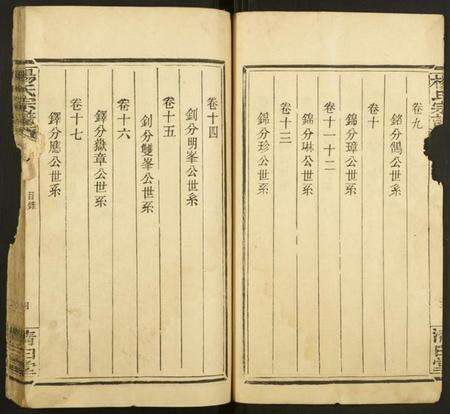 卷九
銘分鶴公世系
卷十
錦分璋公世系
卷十一十二
錦分琳公世系
卷十三
錫分珍公世系
卷十四
釗分明峯公世系
卷十五
釗分雙峯公世系
卷十六
鐸分嶽章公世系
卷十七
鐸分應公世系
楊氏宗譜
目錄
清白堂